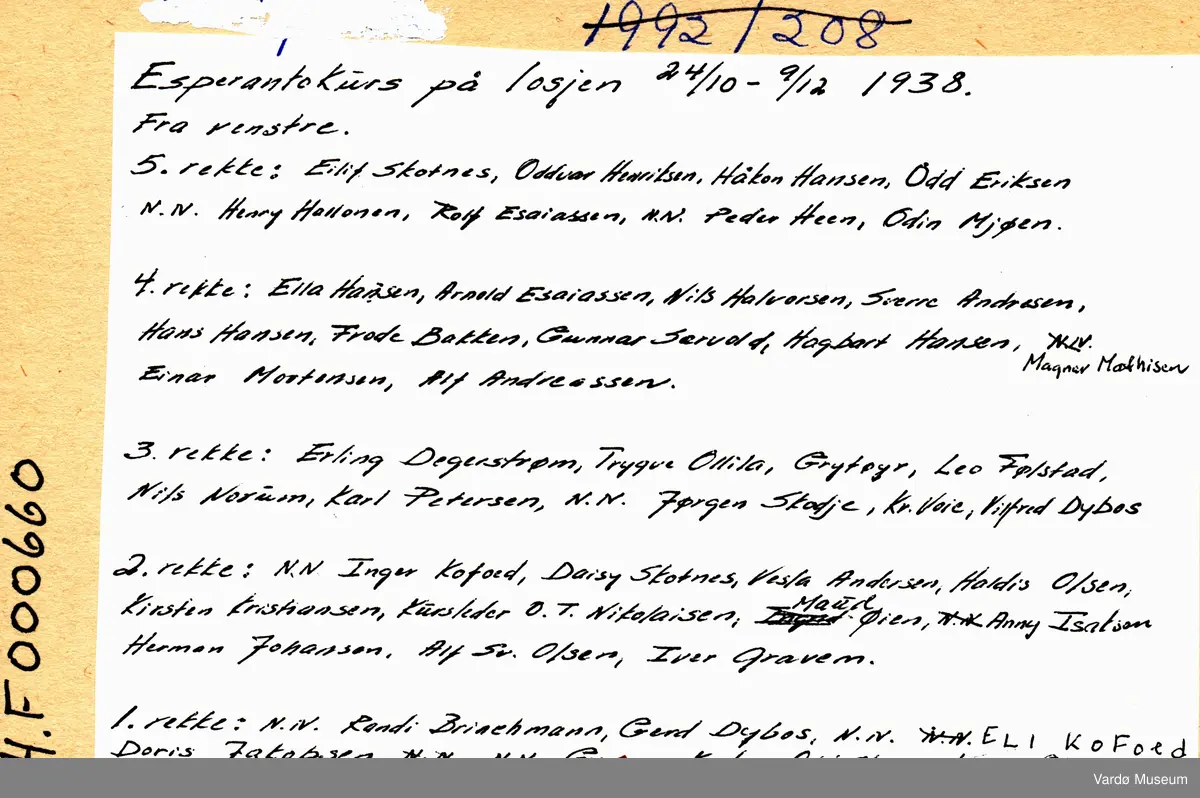 1992/208
Esperantokurs på losjen 24/10 - 9/12 1938.
Fra venstre.
5. rekke: Eilif Skotnes, Oddvar Henriksen, Håkon Hansen, Odd Eriksen
N.N. Henry Hallonen, Rolf Esaiassen, N.N. Peder Heen, Odin Mjøen.
4. rekke: Ella Hansen, Arnold Esaiassen, Nils Halvorsen, Sverre Andresen,
Hans Hansen, Frode Bakken, Gunnar Særvold, Hagbart Hansen, N.N.
Magnar Mathisen
Einar Mortensen, Alf Andreassen.
3. rekke: Erling Degerstrøm, Trygve Ollila, Grytøyr, Leo Følstad,
Nils Norum, Karl Petersen, N.N. Jørgen Skodje, Kr. Voie, Vilfred Dybos
2. rekke: N.N Inger Kofoed, Daisy Skotnes, Vesla Andersen, Haldis Olsen,
Maud
Kirsten Kristiansen, Kursleder O. T. Nikolaisen, Øien, N.N Anny Isaksen
Herman Johansen, Alf Sv. Olsen, Iver Gravem.
1. rekke: N.N. Randi Brinchmann, Gerd Dybos, N.N. N.N. ELI KOFOED
Doris Jakobsen N.N. N.N.
H.F000660
Vardø Museum